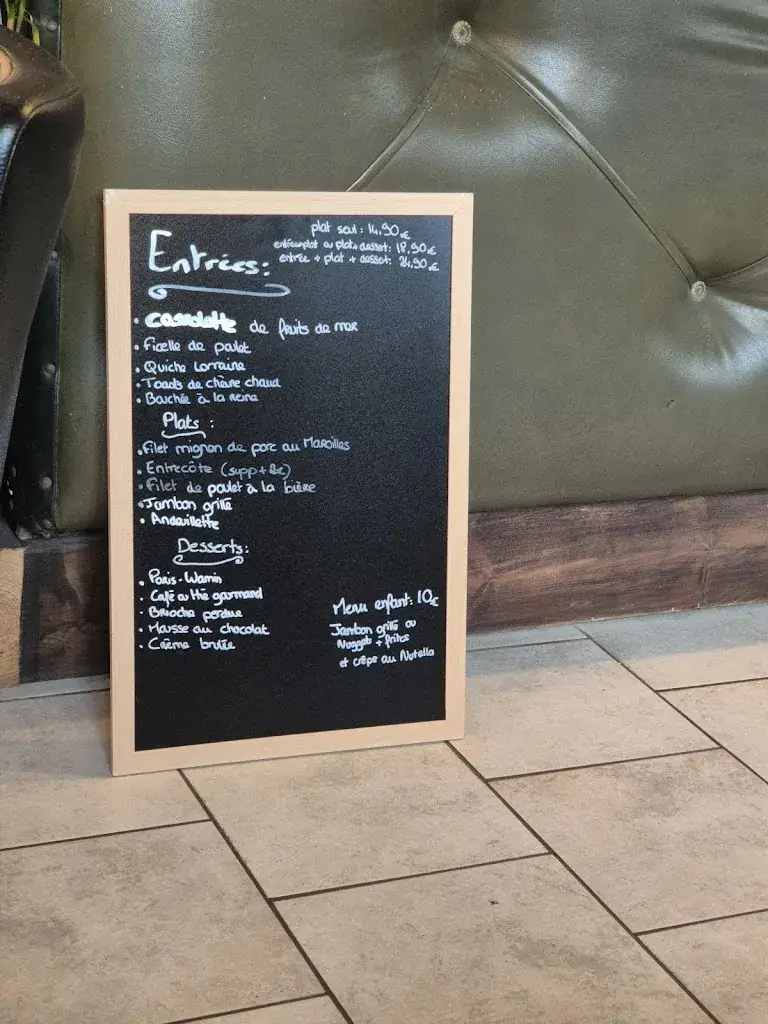 plat seul : 14,90€
entrée+plat ou plat+dessert : 18,90€
entrée + plat + dessert : 24,90€
Entrées :
• cassolette de fruits de mer
• Ficelle de poulet
• Quiche Lorraine
• Toasts de chèvre chaud
• Bouchée à la reine
Plats :
• Filet mignon de porc au Maroilles
• Entrecôte (supp+2€)
• Filet de poulet à la bière
• Jambon grillé
• Andouillette
Desserts :
• Paris-Wamin
• Café ou thé gourmand
• Brioche perdue
• Mousse au chocolat
• Crème brulée
Menu enfant : 10€
Jambon grillé ou
Nuggets + frites
et crêpe au Nutella